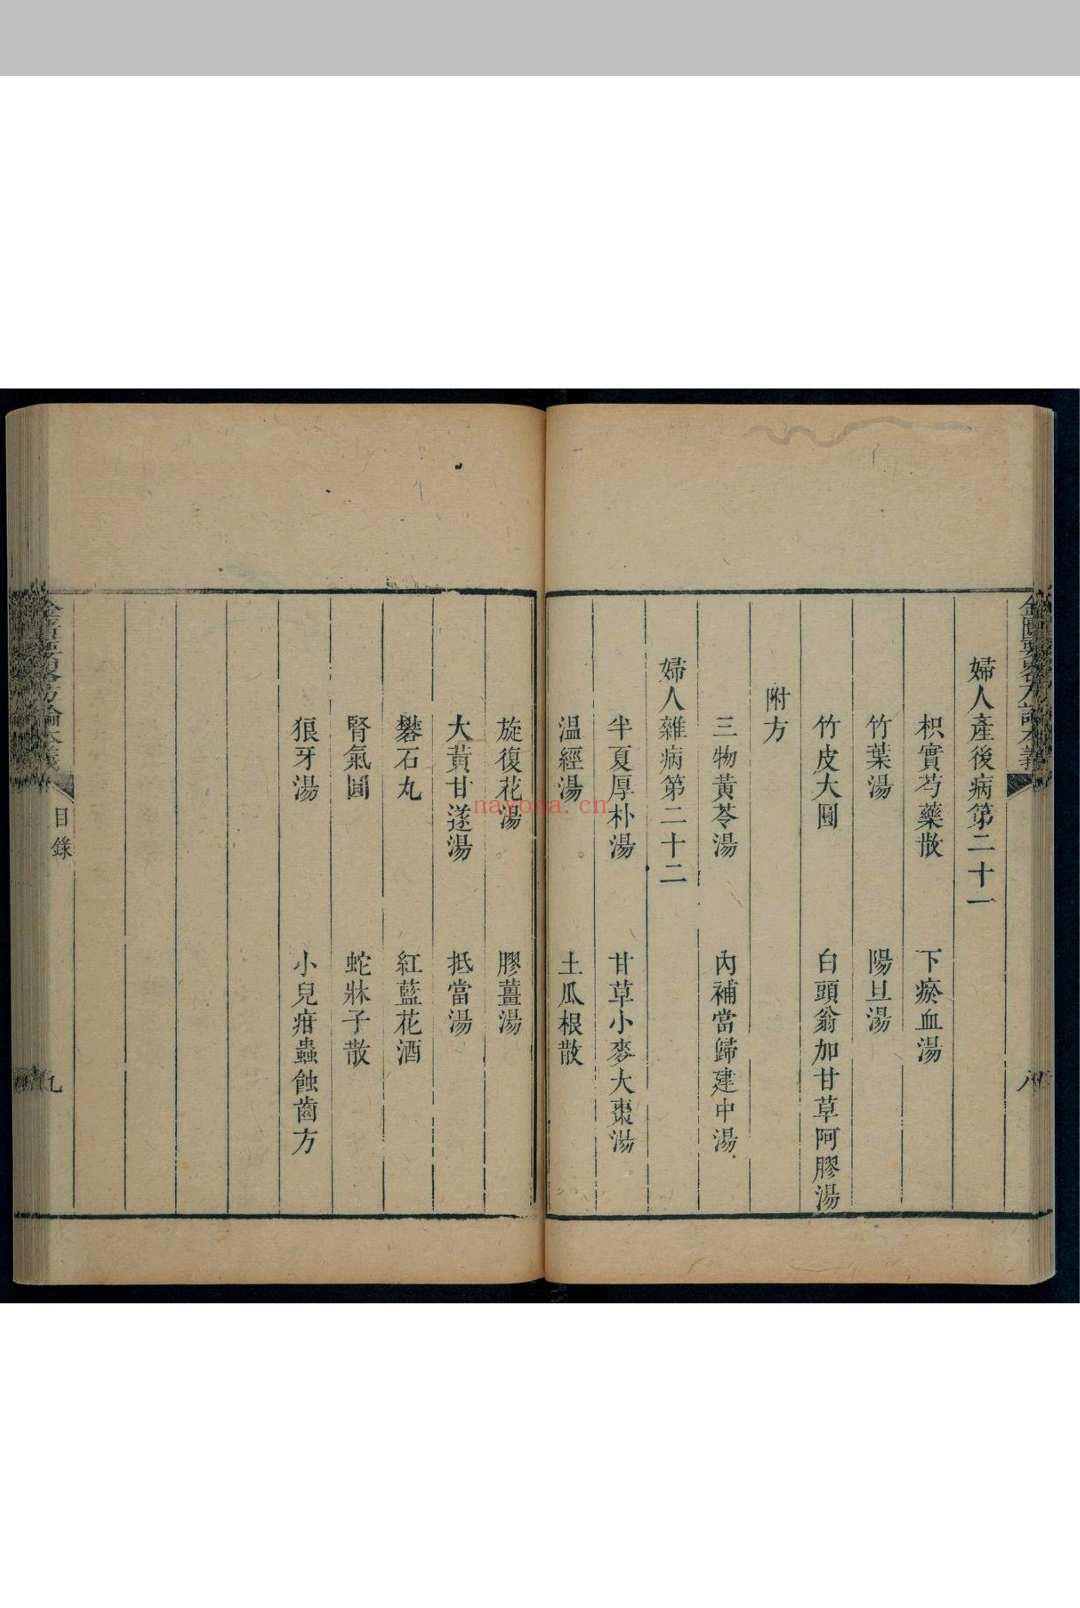 金匱要畧方論本義
八
婦人產後病第二十一
枳實芍藥散 下瘀血湯
竹葉湯 陽旦湯
竹皮大圓 白頭翁加甘草阿膠湯
附方
三物黃芩湯 內補當歸建中湯
婦人雜病第二十二
半夏厚朴湯 甘草小麥大棗湯
温經湯 土瓜根散
旋復花湯 膠薑湯
大黃甘遂湯 抵當湯
礬石丸 紅藍花酒
腎氣圓 蛇牀子散
狼牙湯 小兒疳蟲蝕齒方
金匱要畧方論本義
目錄
九
nayona.cn